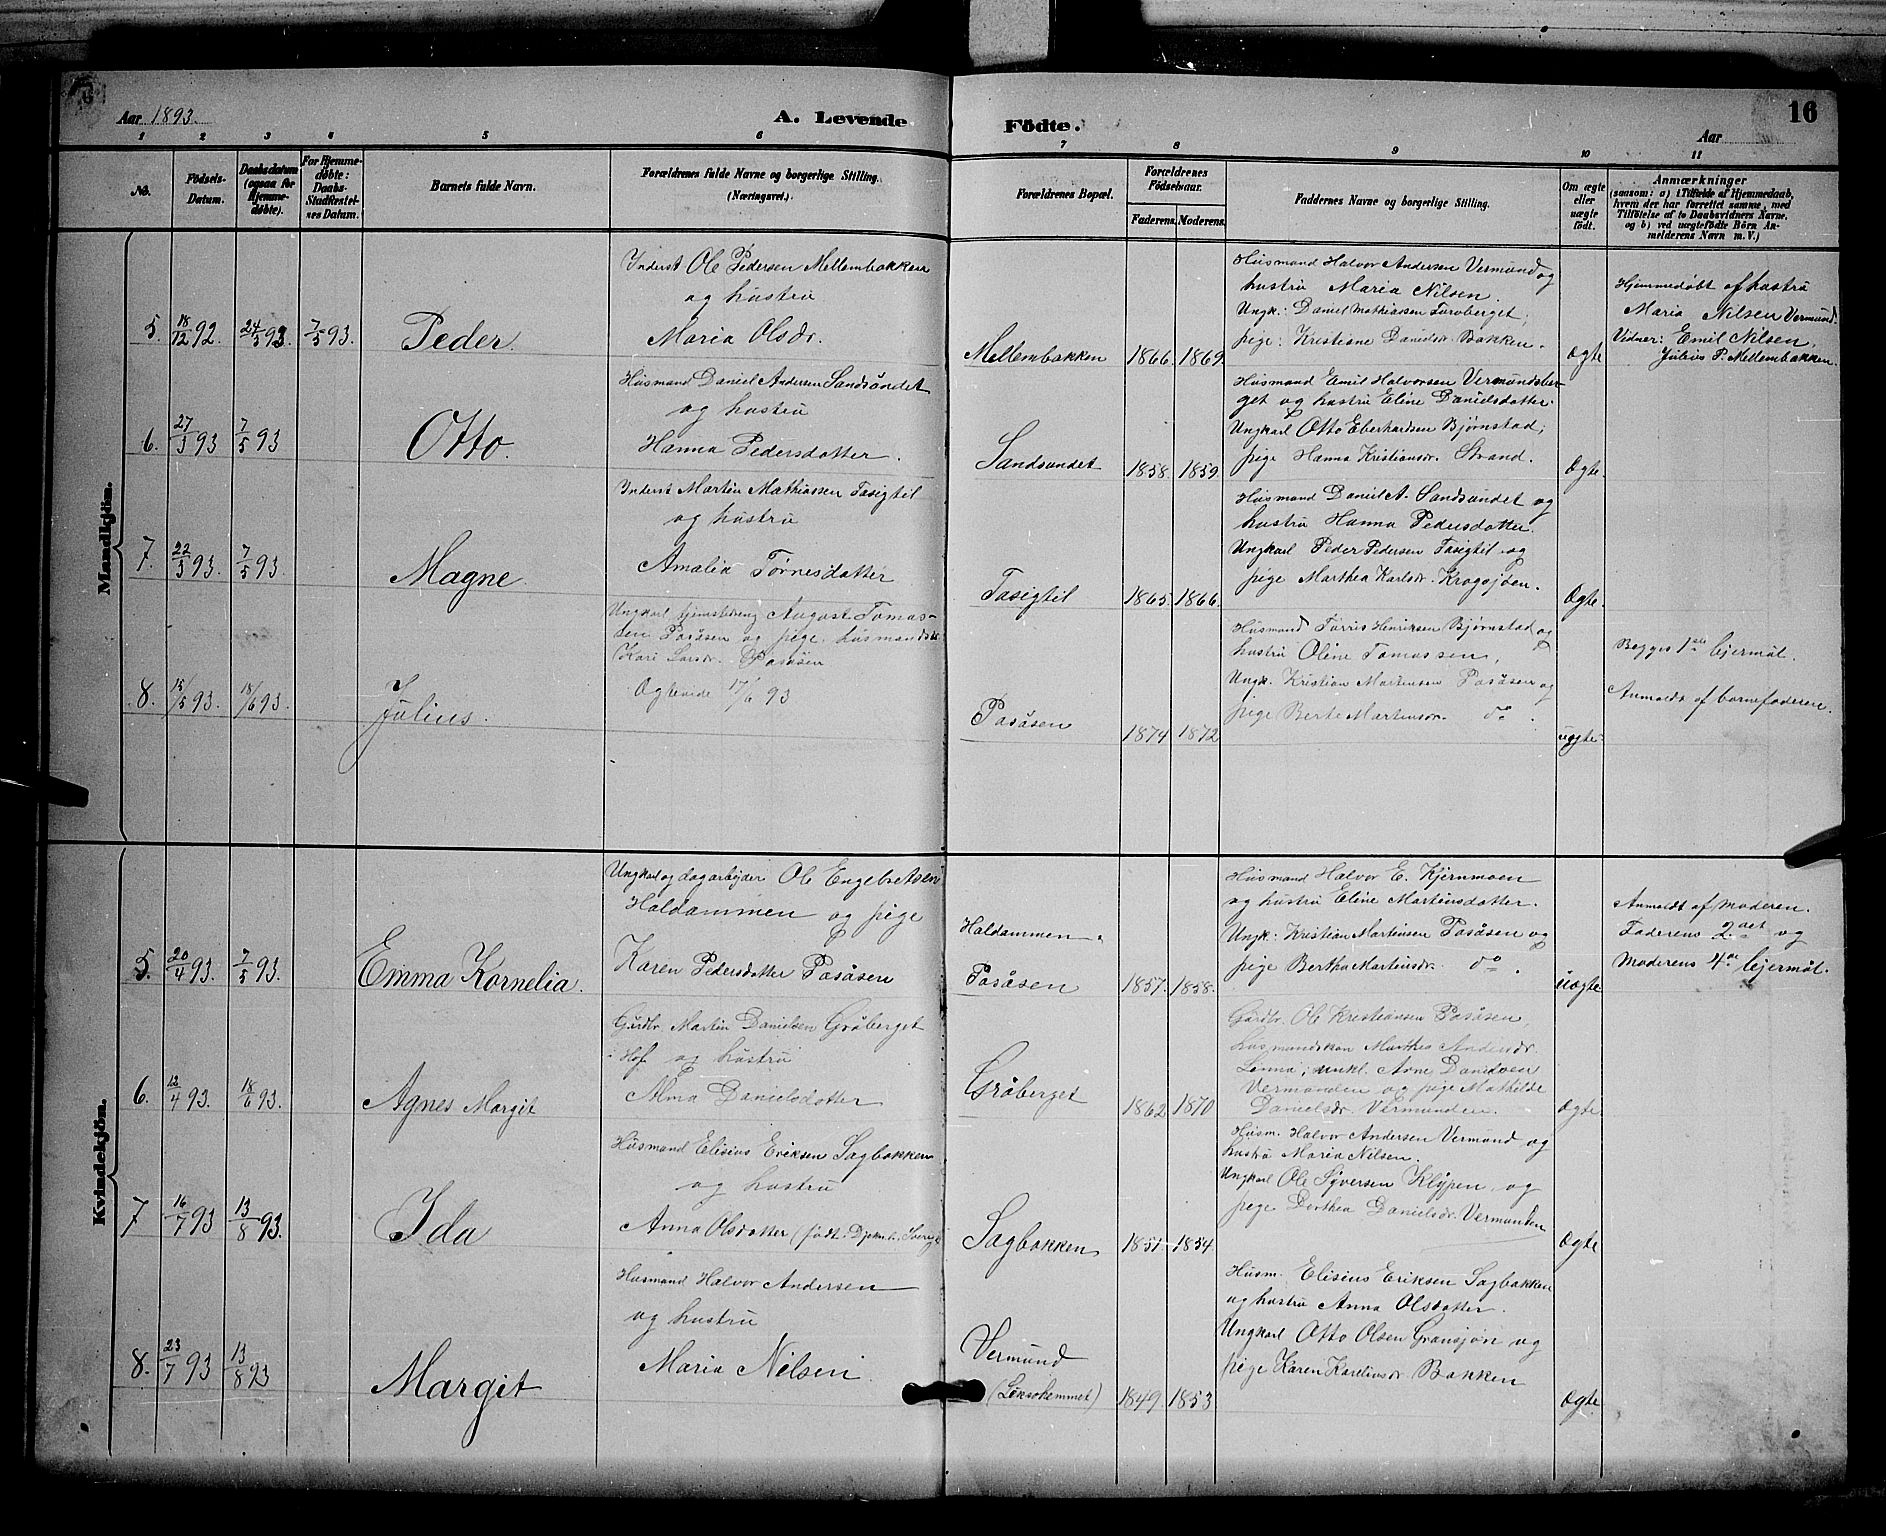 16
Aar 1893.
A. Levende Födte.
Aar
1 2 3 4 5 6 7 8 9 10 11
No.
Födsels-Datum.
Daabsdatum (ogsaa for Hjemmedøbte).
For Hjemmedøbte: Daabs-Stadfæstelsesnes Datum.
Barnets fulde Navn.
Forældrenes fulde Navne og borgerlige Stilling.
(Næringsvei.)
Forældrenes Bopæl.
Forældrenes Födselsaar.
Faderens. Moderens.
Faddernes Navne og borgerlige Stilling.
Om ægte eller uægte født.
Anmærkninger
(saasom: a) i Tilfælde af Hjemmedaab,
hvem der har forrettet samme, med
Tilföielse af to Daabsvidners Navne.
og b) ved uægtefödte Börn An-
melderens Navn m. V.)
Mandkjön.
5. 18/12 92. 24/3 93 7/5 93. Peder.
Inderst Ole Pedersen Mellembakken
og hustru
Maria Olsdr.
Mellembakken 1866. 1869
Husmand Halvor Andersen Vermund og
hustru Maria Nilsen.
Ungk.: Daniel Mathiassen Furuberget,
pige: Kristiane Danielsdr. Bakken.
Ægte
Hjemmedøbt af hustru
Maria Nilsen Vermund.
Vidner: Emil Nilsen,
Julius P. Mellembakken.
6. 27/3 93 7/5 93 Otto.
Husmand Daniel Andersen Sandsundet
og hustru
Hanna Pedersdatter.
Sandsundet 1858. 1859.
Husmand Emil Halvorsen Vermundsber-
get og hustru Eline Danielsdatter.
Ungkarl Otto Eberhardsen Bjørnstad;
pige Hanna Kristiansdr. Strand.
Ægte.
7. 22/3 93. 7/5 93. Magne
Inderst Martin Mathiassen Tasigtil
og hustru
Amalia Tørresdatter
Tasigtil 1865. 1866.
Husmand Daniel A. Sandsundet og
hustru Hanna Pedersdatter.
Ungkarl Peder Pedersen Tasigtil og
pige Marthea Karlsdr. Krogsjøen.
Ægte.
8. 15/5 93. 18/6 93. Julius.
Ungkarl tjenestedreng August Tomas-
sen Pasåsen og pige, husmandsdt.
Kari Larsdr. Pasåsen
Ægtevide 17/6 93
Pasåsen 1874 1872
Husmand Tørris Henriksen Bjørnstad og
hustru Oline Tomassen,
Ungk. Kristian Martinsen Pasåsen og
pige Berte Martinsdr. do.
uægte
Begges 1ste lejermål.
Anmeldt af barnefaderen.
Kvindekjön.
5. 20/4 93. 7/5 93. Emma Kornelia.
Ungkarl og dagarbejder Ole Engebretsen
Haldammen og pige
Karen Pedersdatter Pasåsen
Haldammen.
Pasåsen 1857. 1858.
Husmand Halvor E. Kjernmoen
og hustru Eline Martinsdatter.
Ungk.: Kristian Martinsen Pasåsen og
pige Bertha Martinsdr. do.
uægte
Anmeldt af moderen.
Faderens 2det og
Moderens 4de lejermål.
6. 12/4 93. 18/6 93. Agnes Margit
Gårdbr. Martin Danielsen Gråberget
i Hof og hustru
Alma Danielsdatter
Gråberget 1862 1870
Gårdbr. Ole Kristiansen Pasåsen,
husmandskon Marthea Andersdr.
Linna; unkl. Arne Danielsen
Vermunden og pige Mathilde
Danielsdr. Vermunden.
Ægte
7 16/7 93 13/8 93. Ida
Husmand Elisius Eriksen Sagbakken
og hustru
Anna Olsdatter (født i
Sagbakken 1851. 1854.
Husm. Halvor Andersen Vermund og
hustru Maria Nilsen.
Ungkarl Ole Syversen Kløpen og
pige Dorthea Danielsdr. Vermunden
Ægte
8. 23/7 93 13/8 93 Margit
Husmand Halvor Andersen
og hustru
Maria Nilsen.
Vermund
1849. 1853
Husm. Elisius Eriksen Sagbakken
og hustru Anna Olsdatter.
Ungkarl Otto Olsen Gransjøn og
pige Karen Karelinsdr. Bakken
Ægte